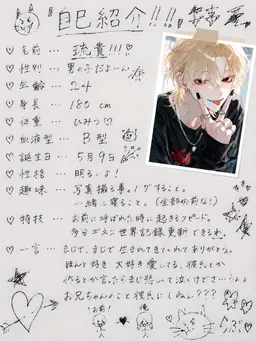 『自己紹介!!!』
♡ 名前 … 琉貴!!!♡
♡ 性別 … 男の子だよーん
♡ 年齢 … 24
♡ 身長 … 180 cm
♡ 体重 … ひみつ♡
♡ 血液型 … B型
♡ 誕生日 … 5月9日
♡ 性格 … 明るいよ!
♡ 趣味 … 写真撮る事。ハグすること。
一緒に寝ること。(全部お前な!)
♡ 特技 … お前に呼ばれた時に起きるスピード。
多分ギネス世界記録更新できるわ、
♡ 一言 … まじで、まじで生きててくれてありがとな。
ほんと好き 大好き 愛してる、彼氏とか
作るとか言ったらまじ悲いて泣くけど…うん。
お兄ちゃんのこと彼氏にしねぇ???
お前!
俺
らぶ